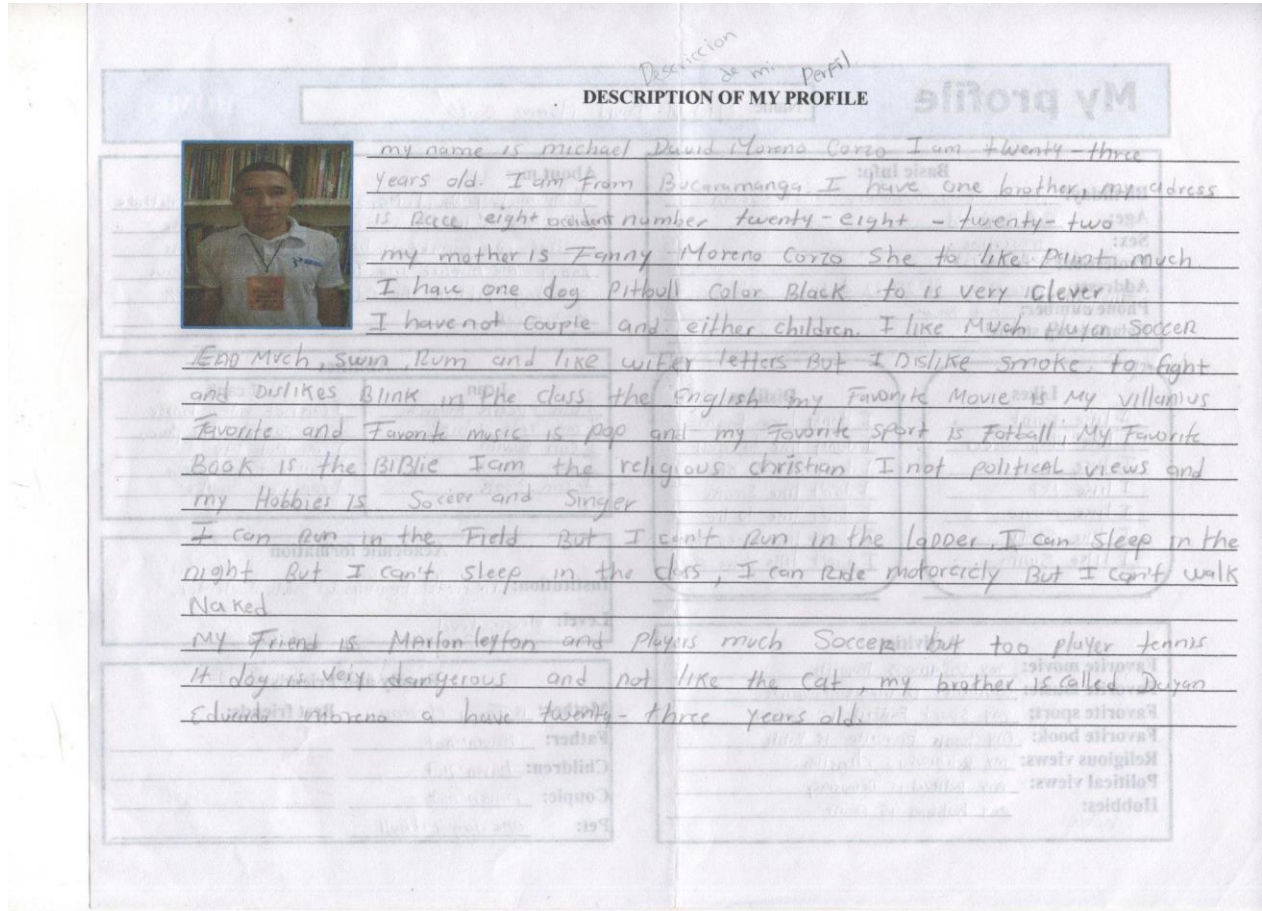 Descriccion de mi perfil
DESCRIPTION OF MY PROFILE
My profile
my name is michael David Moreno Corzo I am twenty-three
years old. I am From Bucaramanga I have one brother, my adress
is Race eight occident number twenty-eight - twenty-two
my mother is Fanny Moreno Corzo She to like Paint much
I have one dog Pitbull Color Black to is very clever
I have not couple and either children. I like Much player Soccer
End Much, swin, Rum and like witer letters But I Dislike smoke, to fight
and Dislikes Blink in the class the English my Favorite Movie is My villanius
Favorite and Favorite music is pop and my Favorite sport is Fotball, My Favorite
Book is the BiBlie I am the religious christian I not political views and
my Hobbies is Soccer and Singer
I can Run in the Field But I can't Run in the ladder, I can Sleep in the
night But I can't sleep in the class, I can Ride motorcicly But I can't walk
Naked
My Friend is Marlon leyton and players much Soccer but too player tennis
It dog is very dangerous and not like the Cat, my brother is called Dayan
Eduardo moreno a have twenty-three years old.
Basic Info:
About me
Favorite movie:
Favorite sport:
Favorite book:
Religious views:
Political views:
Hobbies:
Father:
Children:
Couple:
Pet: